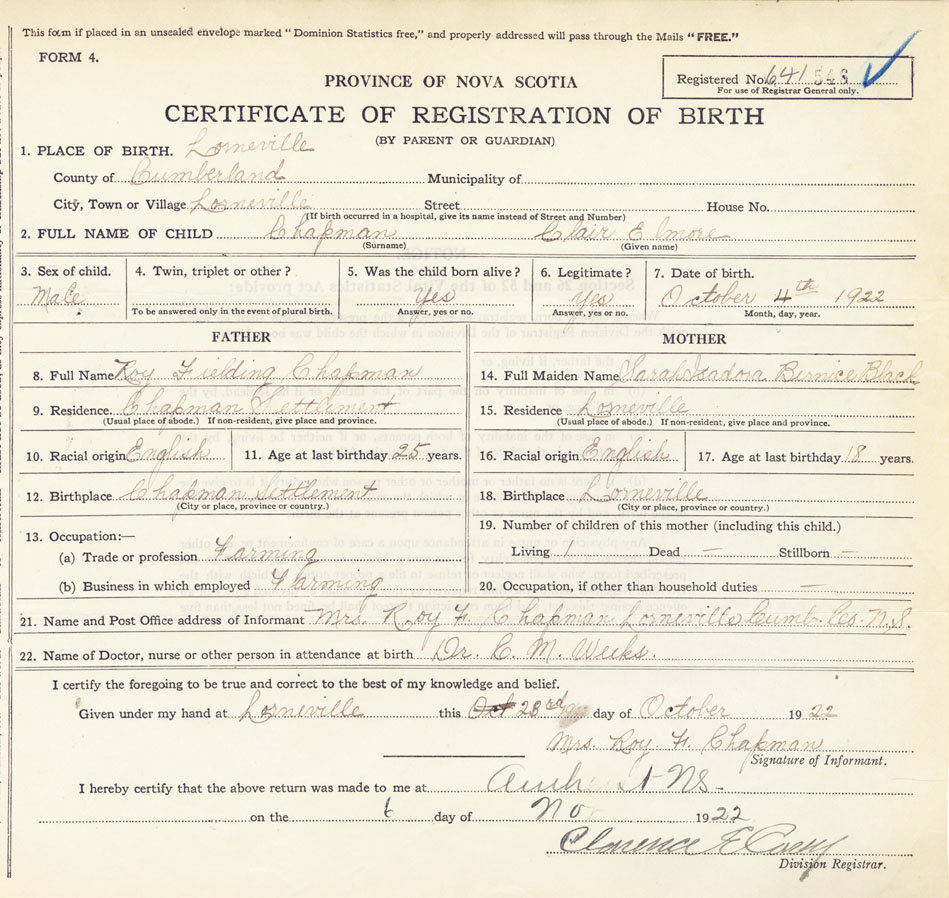 This form if placed in an unsealed envelope marked "Dominion Statistics free," and properly addressed will pass through the Mails "FREE."
FORM 4.
PROVINCE OF NOVA SCOTIA
Registered No. 641
For use of Registrar General only.
CERTIFICATE OF REGISTRATION OF BIRTH
(BY PARENT OR GUARDIAN)
1. PLACE OF BIRTH. Lorneville
County of Cumberland Municipality of
City, Town or Village Lorneville Street House No.
(If birth occurred in a hospital, give its name instead of Street and Number)
2. FULL NAME OF CHILD Chapman Clair Elmore
(Surname) (Given name)
3. Sex of child. 4. Twin, triplet or other? 5. Was the child born alive? 6. Legitimate? 7. Date of birth.
Male Yes Yes October 4th 1922
To be answered only in the event of plural birth. Answer, yes or no. Answer, yes or no. Month, day, year.
FATHER
8. Full Name Roy Fielding Chapman
9. Residence. Chapman Settlement
(Usual place of abode.) If non-resident, give place and province.
10. Racial origin English 11. Age at last birthday 25 years.
12. Birthplace Chapman Settlement
(City or place, province or country.)
13. Occupation:—
(a) Trade or profession Farming
(b) Business in which employed Farming
MOTHER
14. Full Maiden Name Sarah Isadora Bernice Black
15. Residence Lorneville
(Usual place of abode.) If non-resident, give place and province.
16. Racial origin English 17. Age at last birthday 18 years.
18. Birthplace Lorneville
(City or place, province or country.)
19. Number of children of this mother (including this child.)
Living 1 Dead — Stillborn —
20. Occupation, if other than household duties —
21. Name and Post Office address of Informant Mrs. Roy F. Chapman Lorneville Cumb. Co. N.S.
22. Name of Doctor, nurse or other person in attendance at birth Dr. C. M. Weeks.
I certify the foregoing to be true and correct to the best of my knowledge and belief.
Given under my hand at Lorneville this Oct 23rd day of October 1922
Mrs. Roy F. Chapman
Signature of Informant.
I hereby certify that the above return was made to me at Amherst NS.
on the 6 day of Nov 1922
Clarence F Casey
Division Registrar.